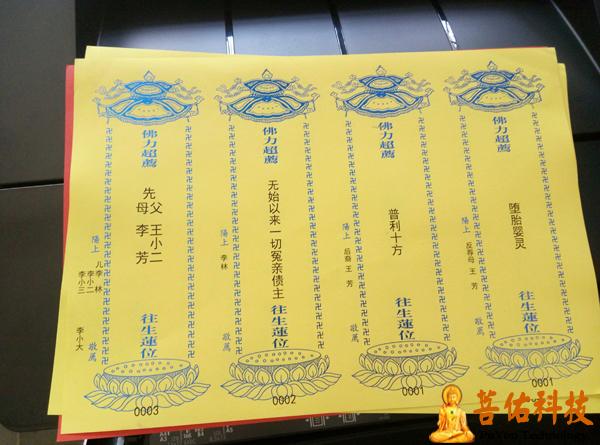 佛力超薦
先父 王小二
母 李 芳
往生蓮位
陽上
儿 李林
李小二
李小三
李小大
敬薦
0003
佛力超薦
无始以来一切冤亲债主
往生蓮位
陽上 李林
敬薦
0002
佛力超薦
普利十方
往生蓮位
陽上 后裔 王 芳
敬薦
0001
佛力超薦
堕胎婴灵
往生蓮位
陽上 王 芳
敬薦
0001
菩佑科技